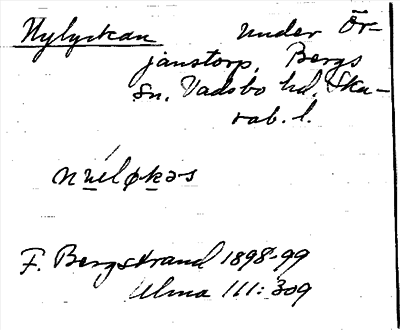 Nylyckan under Ör-
janstorp, Bergs
sn, Vadsbo hd, Ska-
rab. l.
nyẹløkəs
F. Bergstrand 1898-99
Ulma 111:309